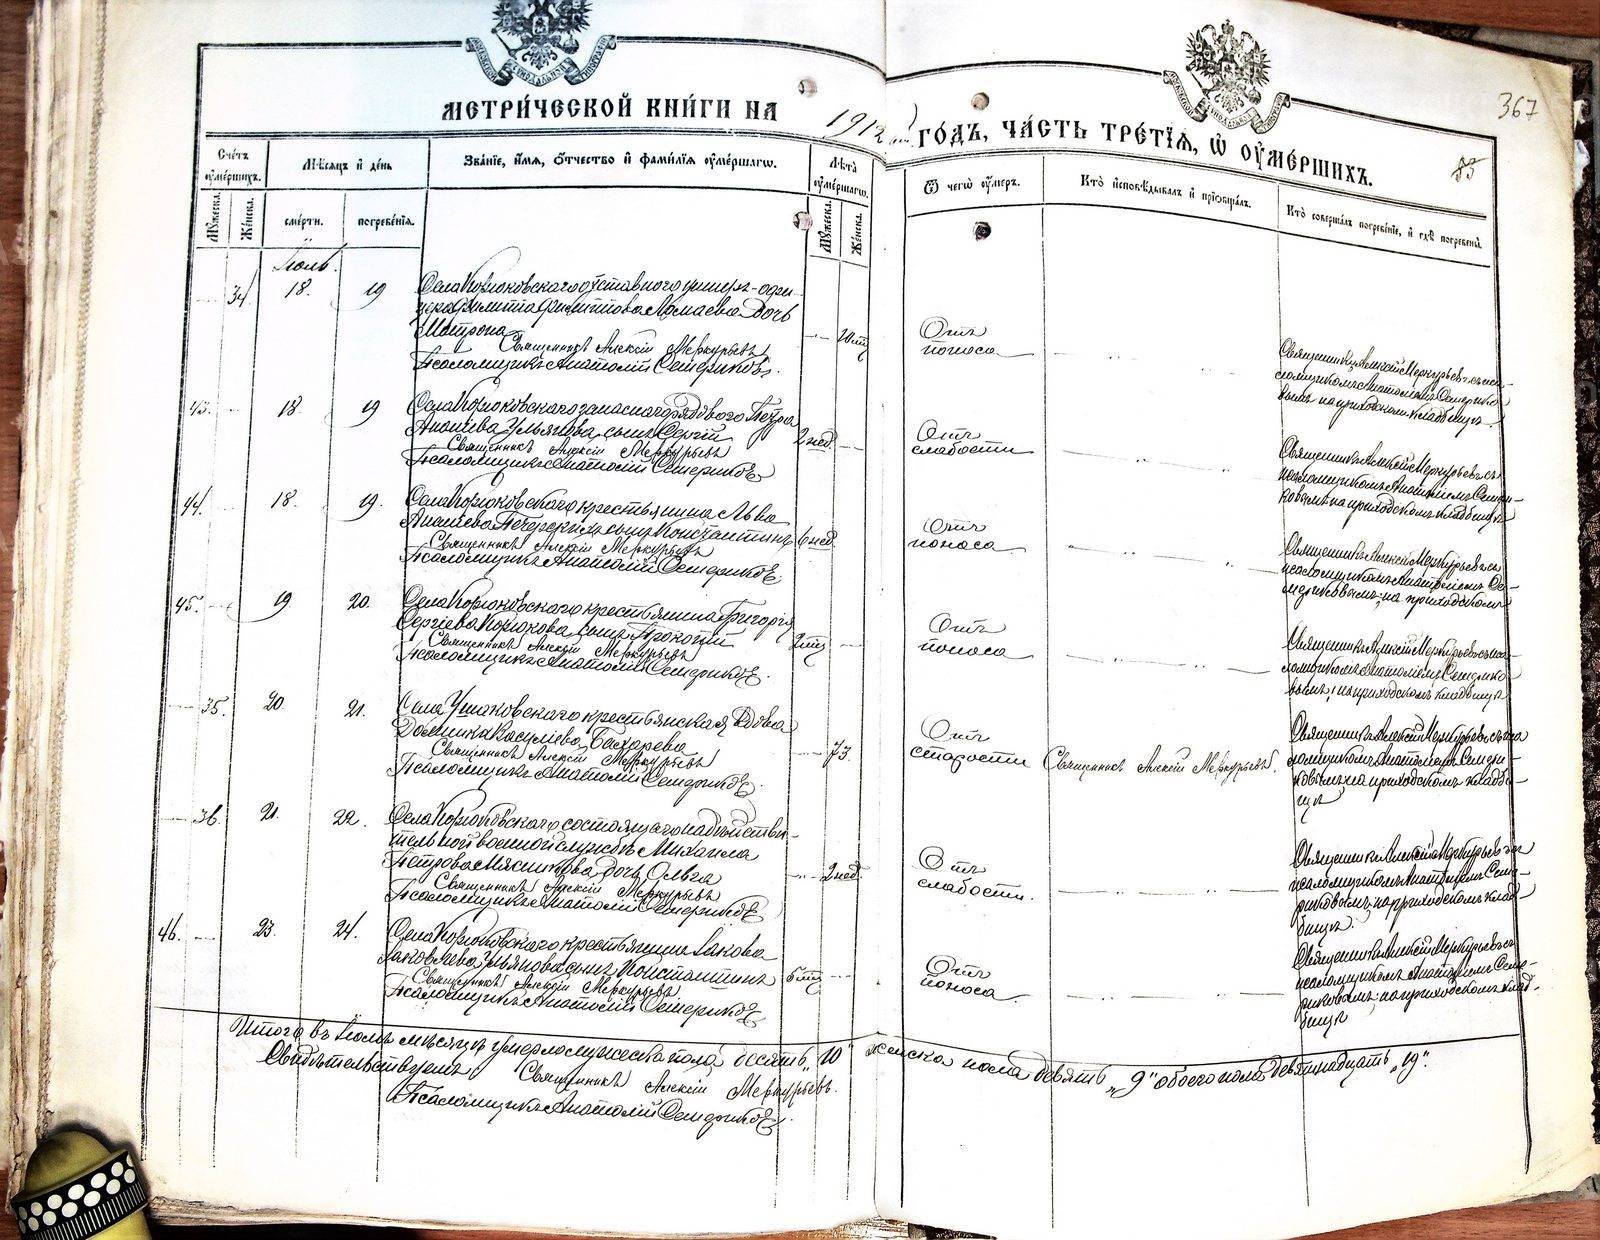 МЕТРИ́ЧЕСКОЙ КНИ́ГИ НА 1912 ГО́ДЪ, ЧА́СТЬ ТРЕ́ТІЯ, Ѽ ОУМЕ́РШИХЪ.
367
Сче́тъ оуме́ршихъ.
Мѣ́сяцъ и де́нь
Зва́ніе, и́мя, о́тчество и фами́лія оуме́ршагѡ.
Лѣ́та оуме́ршагѡ.
Ѿ чегѡ̀ оу́меръ.
Кто̀ исповѣ́дывалъ и пріобща́лъ.
Кто̀ соверша́лъ погребе́ніе, и гдѣ̀ погребены̀.
Му́жеска.
Же́нска.
сме́рти.
погребе́нія.
Му́жеска.
Же́нска.
Іюль.
34 18. 19 Села Корюковскаго отставного унтеръ-офи-
цера Филиппа Филиппова Ломаева дочь
Матрона
Священникъ Алексій Меркурьевъ
Псаломщикъ Анатолій Семериковъ.
Отъ
поноса
Священникъ Алексій Меркурьевъ съ пса-
ломщикомъ Анатоліемъ Семерико-
вымъ на приходскомъ кладбищѣ
43. 18. 19 Села Корюковскаго запаснаго рядового Петра
Ананіева Ульянова сынъ Сергій
2 нед.
Священникъ Алексій Меркурьевъ
Псаломщикъ Анатолій Семериковъ
Отъ
слабости
Священникъ Алексій Меркурьевъ съ
псаломщикомъ Анатоліемъ Семери-
ковымъ на приходскомъ кладбищѣ
44. 18. 19. Села Корюковскаго крестьянина Льва
Ананіева Печерскихъ сынъ Константинъ
6 нед.
Священникъ Алексій Меркурьевъ
Псаломщикъ Анатолій Семериковъ.
Отъ
поноса
Священникъ Алексій Меркурьевъ съ
псаломщикомъ Анатоліемъ Се-
мериковымъ на приходскомъ
45. 19 20. Села Корюковскаго крестьянина Григорія
Сергіева Корюкова сынъ Прокопій
Священникъ Алексій Меркурьевъ
Псаломщикъ Анатолій Семериковъ.
Отъ
поноса
Священникъ Алексій Меркурьевъ съ пса-
ломщикомъ Анатоліемъ Семерико-
вымъ на приходскомъ кладбищѣ
35. 20. 21. Села Ушаковскаго крестьянская вдова
Домника Василіева Бахарева
73
Священникъ Алексій Меркурьевъ
Псаломщикъ Анатолій Семериковъ.
Отъ
старости
Священникъ Алексій Меркурьевъ.
Священникъ Алексій Меркурьевъ съ пса-
ломщикомъ Анатоліемъ Семери-
ковымъ на приходскомъ кладби-
щѣ
36. 21. 22. Села Корюковскаго состоящаго на дѣйстви-
тельной военной службѣ Михаила
Петрова Мясникова дочь Ольга
2 нед.
Священникъ Алексій Меркурьевъ
Псаломщикъ Анатолій Семериковъ
Отъ
слабости.
Священникъ Алексій Меркурьевъ съ
псаломщикомъ Анатоліемъ Семе-
риковымъ на приходскомъ клад-
бищѣ
46. 23. 24. Села Корюковскаго крестьянина Іакова
Іаковлева Ульянова сынъ Константинъ
Священникъ Алексій Меркурьевъ
Псаломщикъ Анатолій Семериковъ
Отъ
поноса.
Священникъ Алексій Меркурьевъ съ
псаломщикомъ Анатоліемъ Семе-
риковымъ на приходскомъ клад-
бищѣ
Итого въ Іюлѣ мѣсяцѣ умерло мужеска пола десять „10“ женска пола девять „9“ обоего пола девятнадцать „19“.
Свидѣтельствуемъ Священникъ Алексій Меркурьевъ.
Псаломщикъ Анатолій Семериковъ.